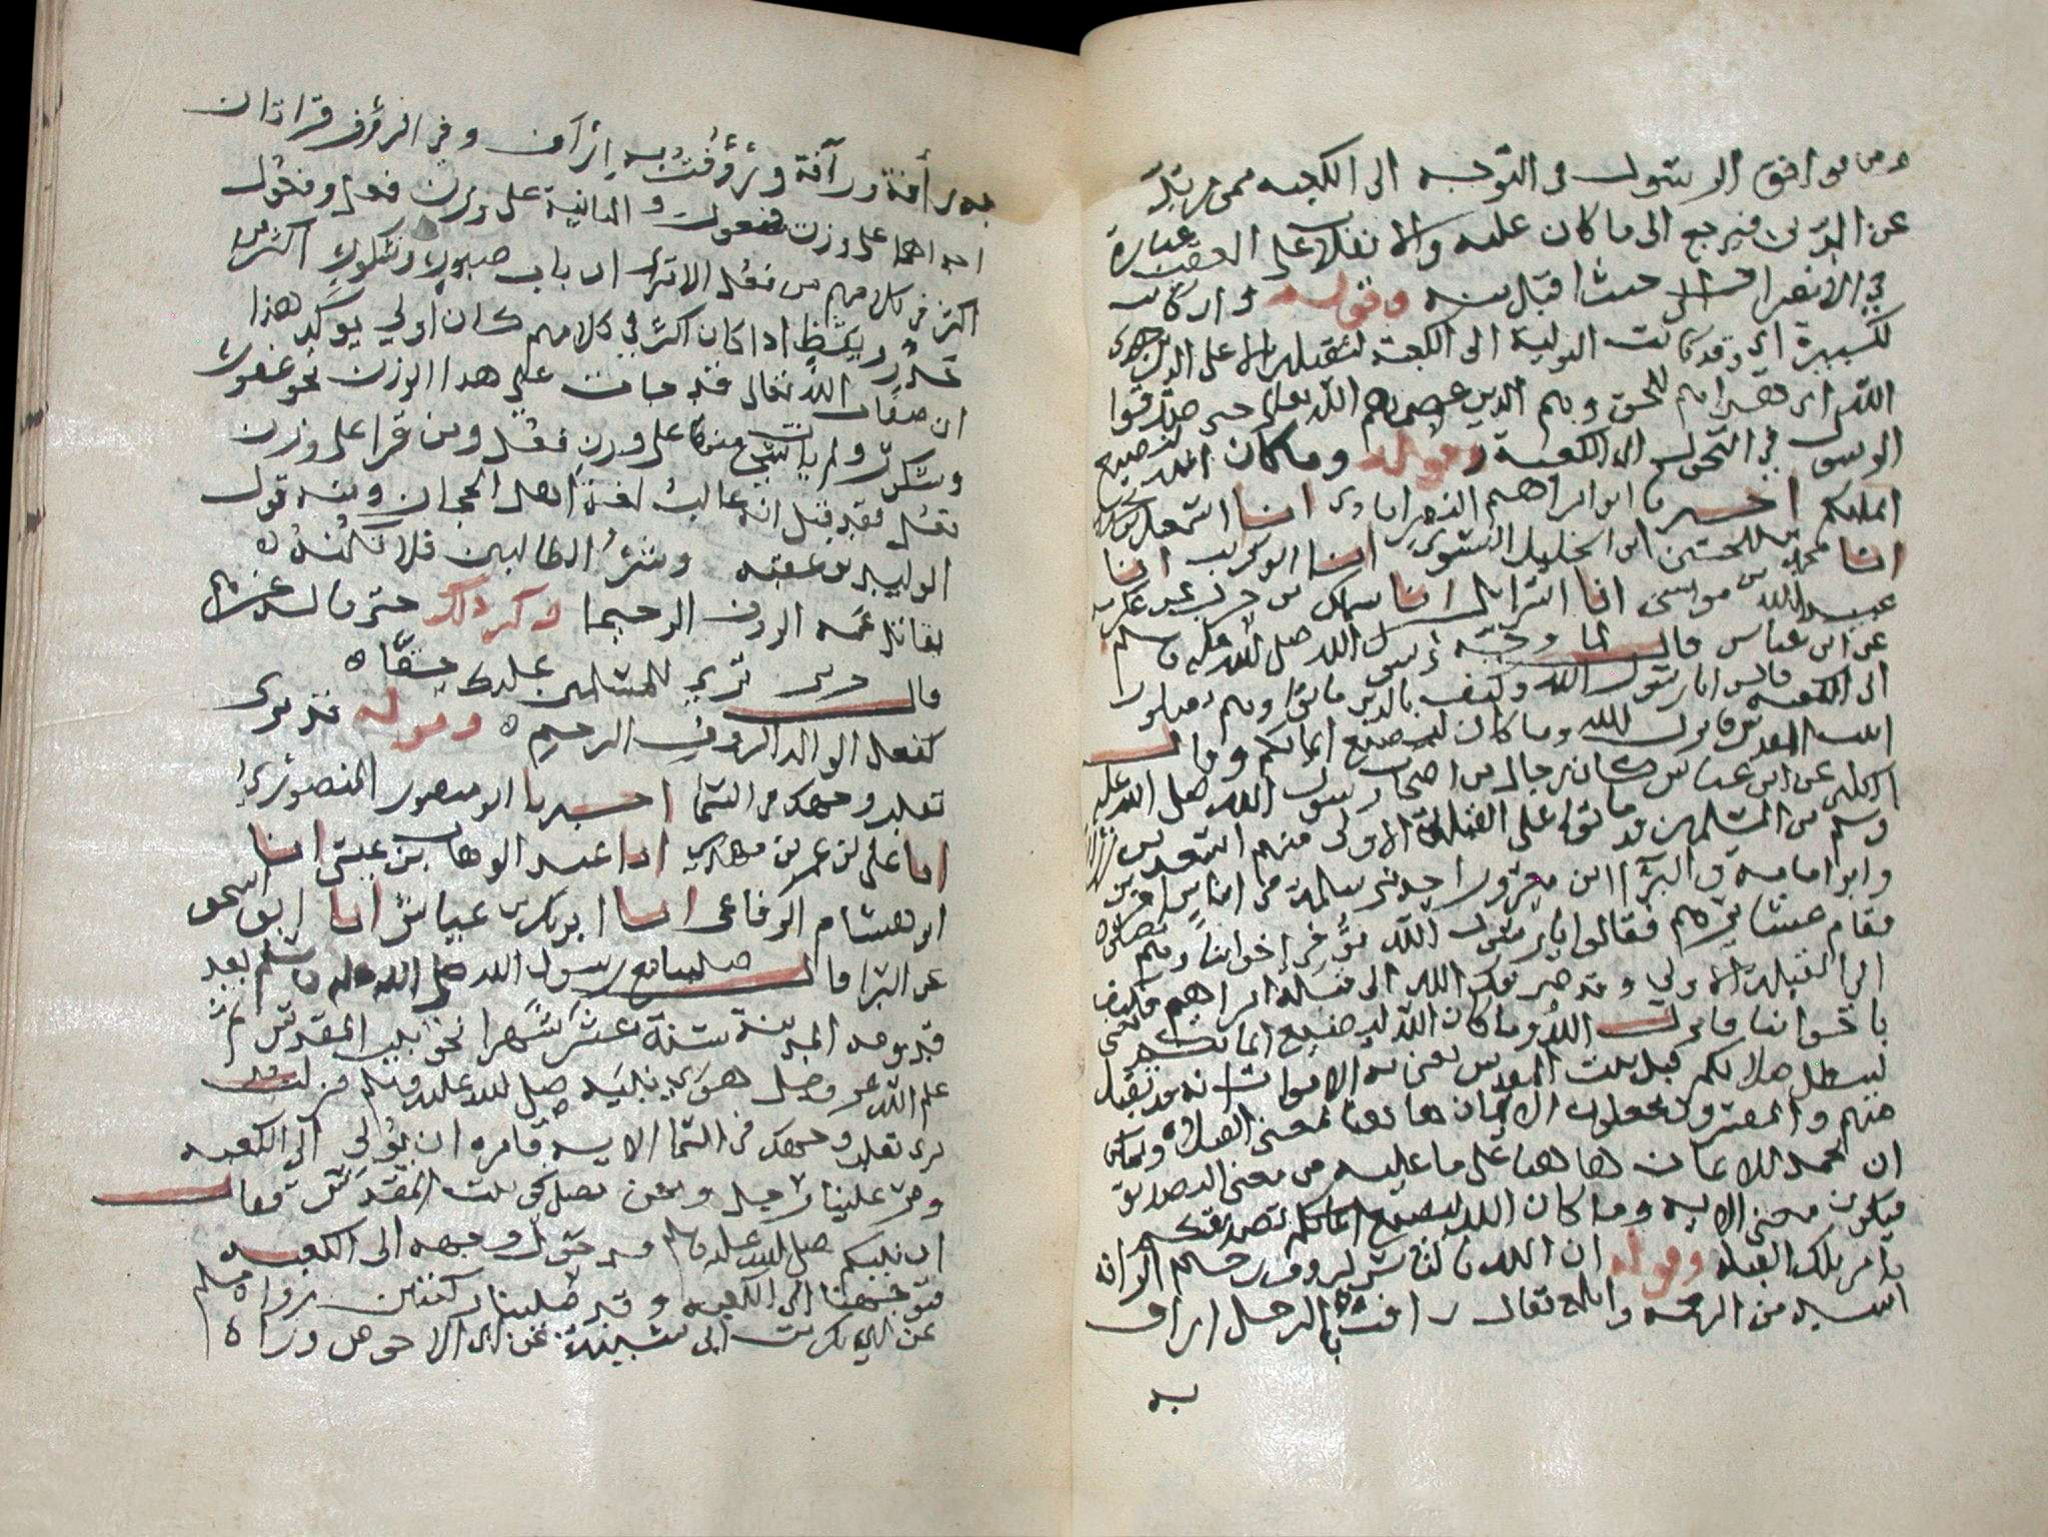 ومن موافق الرسول في التوجه الى الكعبه ممن يرتد
عن الدين فيرجع الى ما كان عليه والانقلاب على العقب عبارة
في الانصراف الى حيث اقبل منه وقوله وان كانت
لكبيرة اي وقد كانت التولية الى الكعبة لثقيلة الا على الذين هدى
الله اي هداهم للحق وهم الذين عصمهم الله تعالى حتى صدقوا
الرسول في التحول الى الكعبة وقوله وما كان الله ليضيع
ايمانكم اخبرنا ابو ابراهيم النصراباذي انا اسمعيل
انا محمد بن الحسن ابن الخليل النسوي انا ابو كريب انا
عبيد الله بن موسى انا اسرائيل انا سماك بن حرب عن عكرمه
عن ابن عباس قال لما وجه رسول الله صلى الله عليه وسلم
الى الكعبه قالوا يا رسول الله وكيف بالذين ماتوا وهم يصلون
الى بيت المقدس فانزل الله وما كان الله ليضيع ايمانكم وقال
الكلبي عن ابن عباس كان رجال من اصحاب رسول الله صلى الله عليه
وسلم من المسلمين قد ماتوا على القبلة الاولى منهم اسعد بن زرارة
وابو امامه والبرآ ابن معرور احد بني سلمة في اناس اخرين
فقام عشائرهم فقالوا يا رسول الله توفي اخواننا وهم يصلون
الى القبلة الاولى وقد صرفك الله الى قبلة ابراهيم فكيف
باخواننا فانزل الله وما كان الله ليضيع ايمانكم يعني
ليبطل صلاتكم قبل بيت المقدس يعني به الاموات انه قد تقبل
منهم والمفسرون يجعلون الايمان هاهنا بمعنى الصلوة ويمكن
ان يحمل الايمان هاهنا على ما عليه من معنى التصديق
فيكون معنى الايه وما كان الله ليضيع ايمانكم تصديقكم
بامر تلك القبلة وقوله ان الله بالناس لروف رحيم الرافة
اشد من الرحمة ويقال رافت بالرجل اراف
به
به رأفة ورآفة ورؤفت به ارآف وفي الرؤف قراتان
احداهما على وزن فعول والثانية على وزن فعل وفعول
اكثر في كلامهم من فعل الا ترى ان باب صبور وشكور اكثر من
حذر ويقظ واذا كان اكثر في كلامهم كان اولى يؤكد هذا
ان صفات الله تعالى قد جات على هذا الوزن نحو غفور
وشكور ولم يات شي منها على وزن فعل ومن قرا على وزن
فعل فقد قيل انه غالب لغة اهل الحجاز ومنه قول
الوليد بن عقبه وشر الطالبين فلا تكنه
يقاتل عمه الرؤف الرحيما وكثر ذلك حتى قاله غيرهم
قال جرير ترى للمسلمين عليك حقا
كفعل الوالد الروف الرحيم وقوله قد نرى
تقلب وجهك في السما اخبرنا ابو منصور المنصوري
انا علي بن عمر بن مهدي انا عبد الوهاب بن عيسى انا
ابو هشام الرفاعي انا ابو بكر بن عياش انا ابو اسحق
عن البرا قال صلينا مع رسول الله صلى الله عليه وسلم بعد
قدومه المدينة ستة عشر شهرا نحو بيت المقدس ثم
علم الله عز وجل هوى نبيه صلى الله عليه وسلم فنزلت قد
نرى تقلب وجهك في السما الايه فامره ان يولي الى الكعبه
ومر علينا رجل ونحن نصلي الى بيت المقدس فقال
ان نبيكم صلى الله عليه وسلم قد حول وجهه الى الكعبه
فتوجهنا الى الكعبه وقد صلينا ركعتين رواه مسلم
عن ابي بكر بن ابي شيبة عن ابي الاحوص ورواه